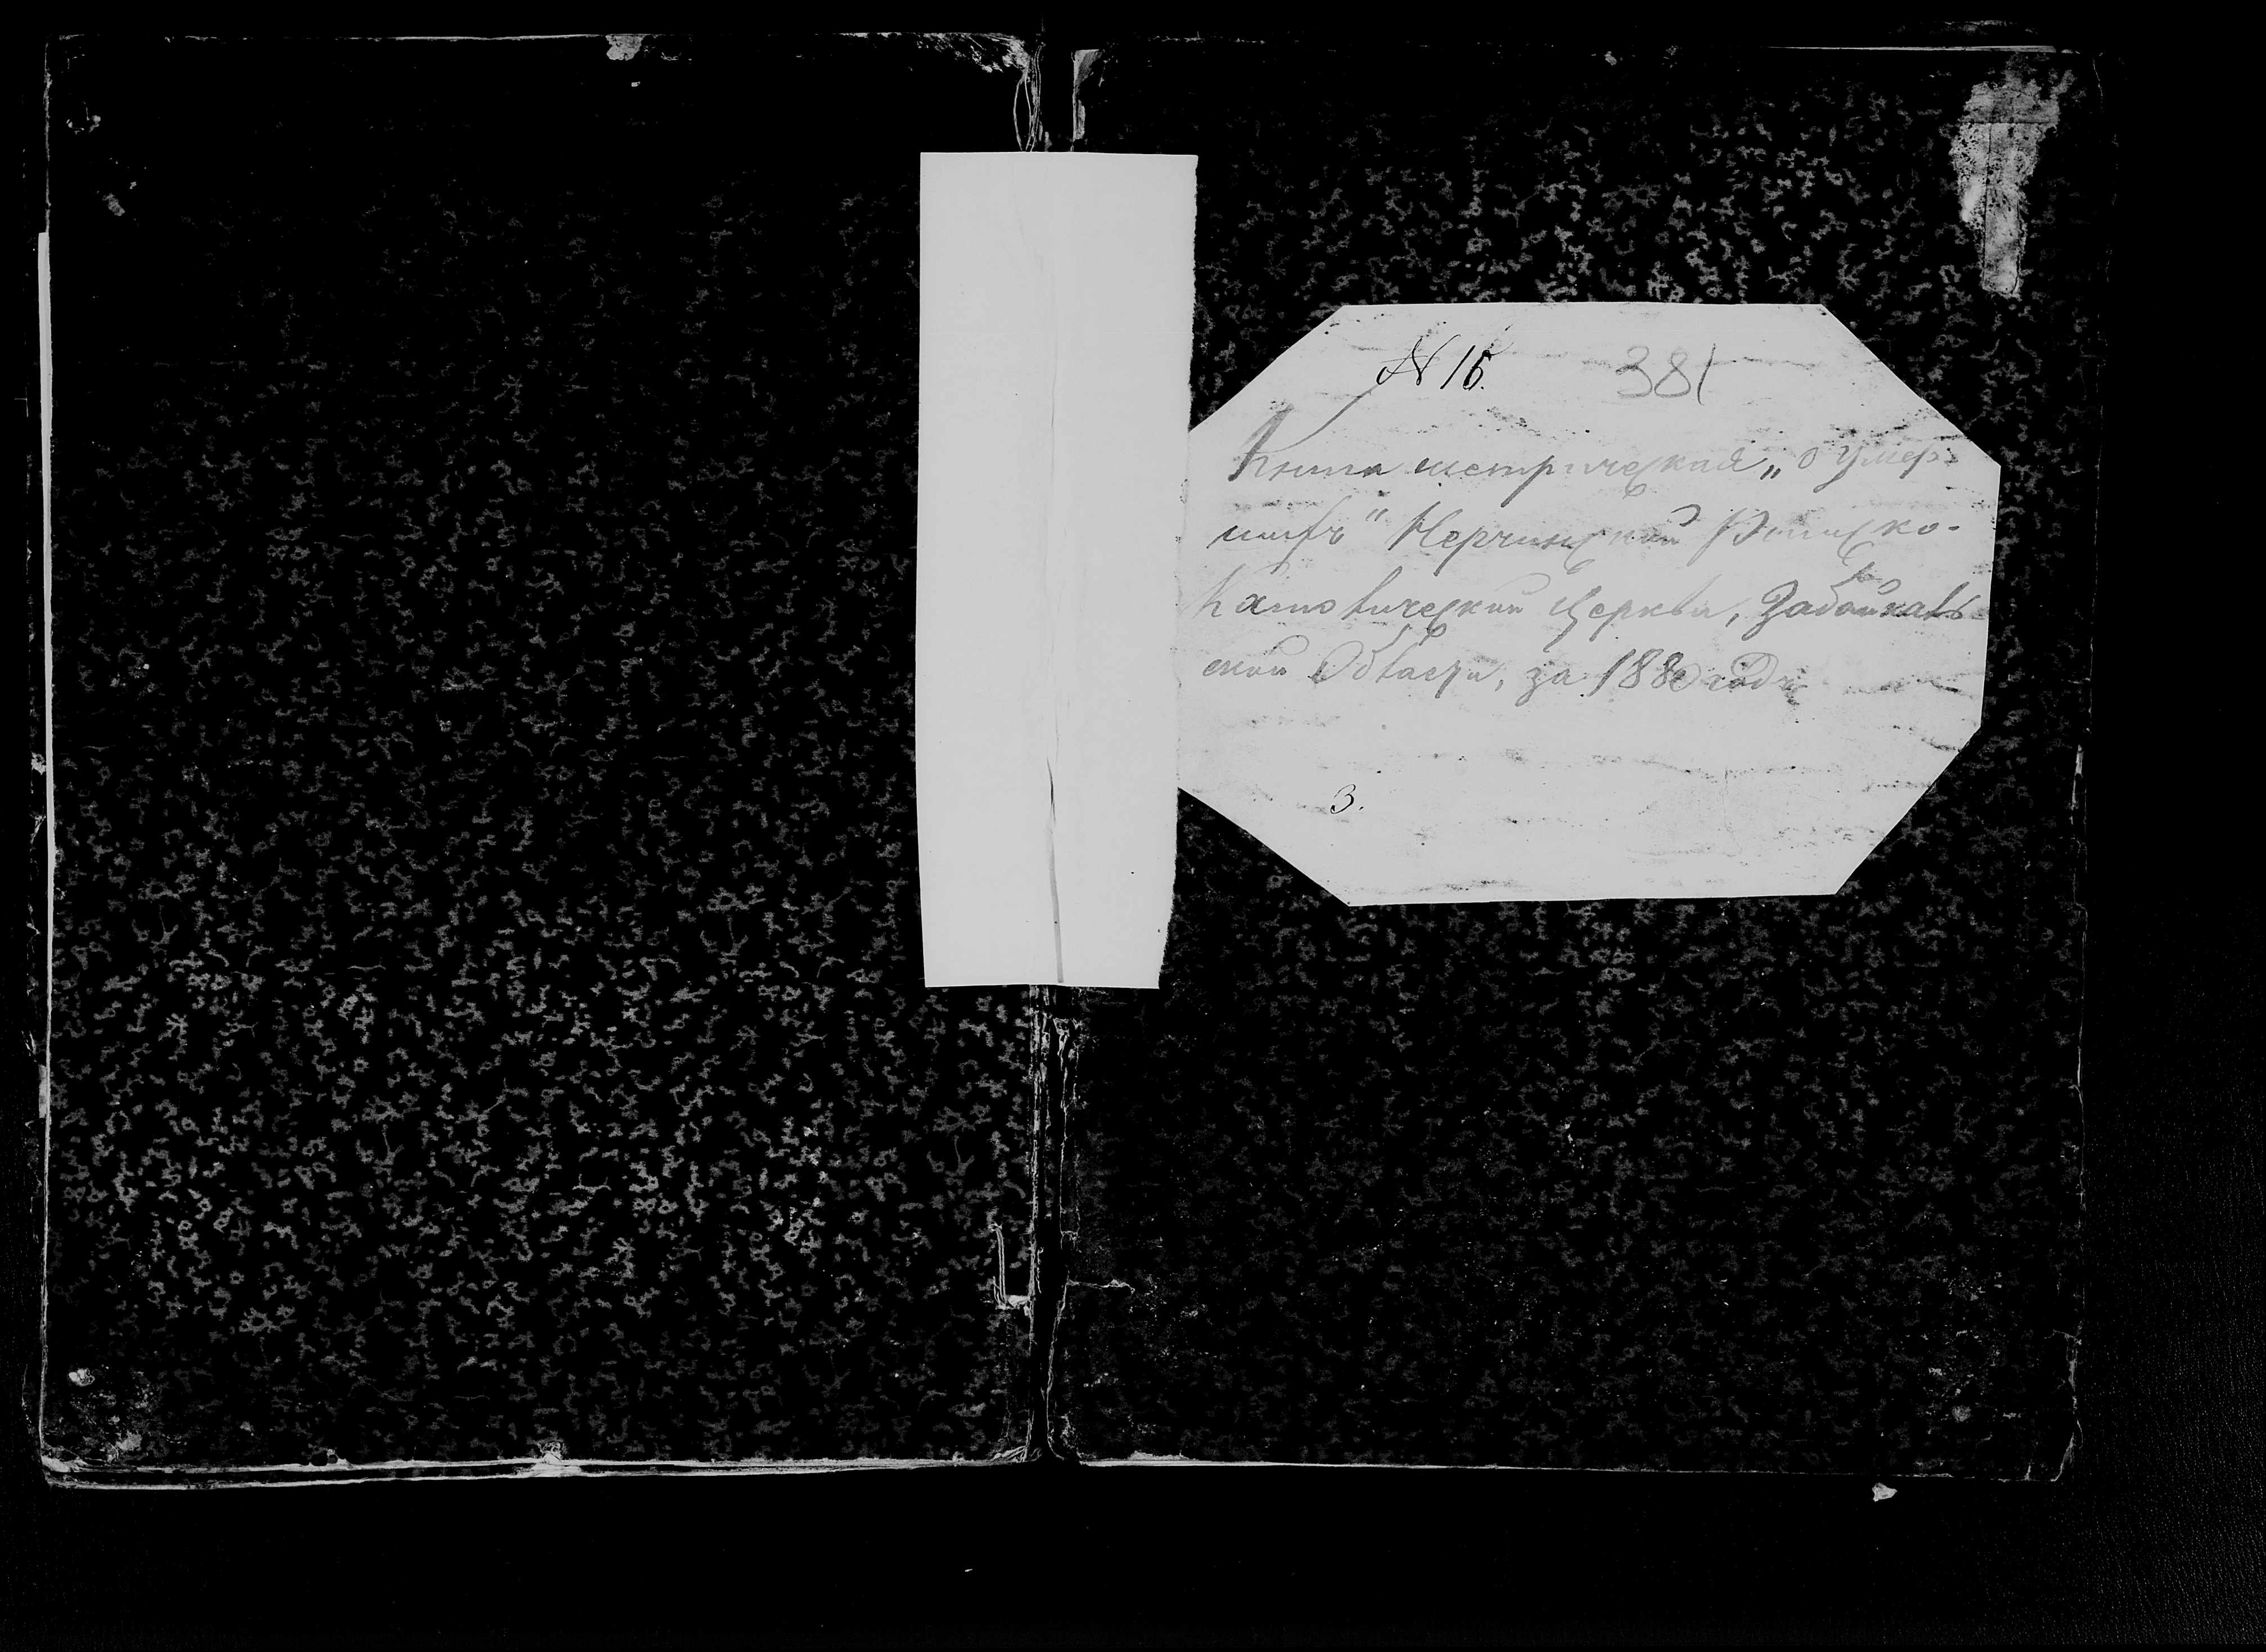 N 16. 381
Книга метрическая „о умер-
шихъ" Нерчинской Римско-
Католической Церкви, Забайкаль-
ской Области, за 1880 годъ
3.